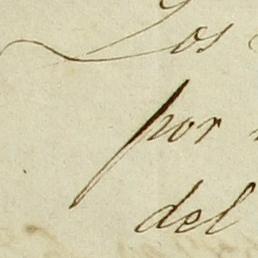 Los
por
del